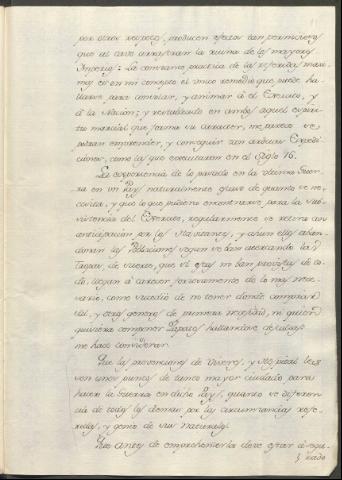 por otros respetos, producen efectos tan perniciosos
que al cavo arrastran la ruina de los mayores
Imperios: La continua practica de las referidas maxi-
mas es en mi concepto el unico remedio que puede ha-
llarse para correxir, y animar á el Exercito, y
á la Nacion; y restablecido en ambos aquel espiri-
tu marcial que forma su caracter, me parece se
podran emprender, y conseguir tan arduas Expedi-
ciones, como las que executaron en el Siglo 16.
La experiencia de lo pasado en la ultima Guer-
ra en un Pays naturalmente escaso de quanto se ne-
cesita, y que lo que pudiera encontrarse para la sub-
sistencia del Exercito, regularmente se retira con
anticipacion por los Havitantes, y aun ellos aban-
donan las Poblaciones segun se van acercando las
Tropas de suerte, que si estas no van provistas de to-
do, llegan á carecer forzosamente de lo mas nece-
sario, como sucedió de no tener donde comprar
sal, y otros generos de primera necesidad, ni quien
quisiera componer Zapatos hallandose descalzos
me hace considerar.
Que las provisiones de Viveres, y Hospitales
son unos puntos de tanto mayor cuidado para
hacer la Guerra en dicho Pays, quanto se diferencia
de todos los demas por las circunstancias refe-
ridas, y genio de sus naturales.
Que antes de emprehenderla deve estar asegu-
rado